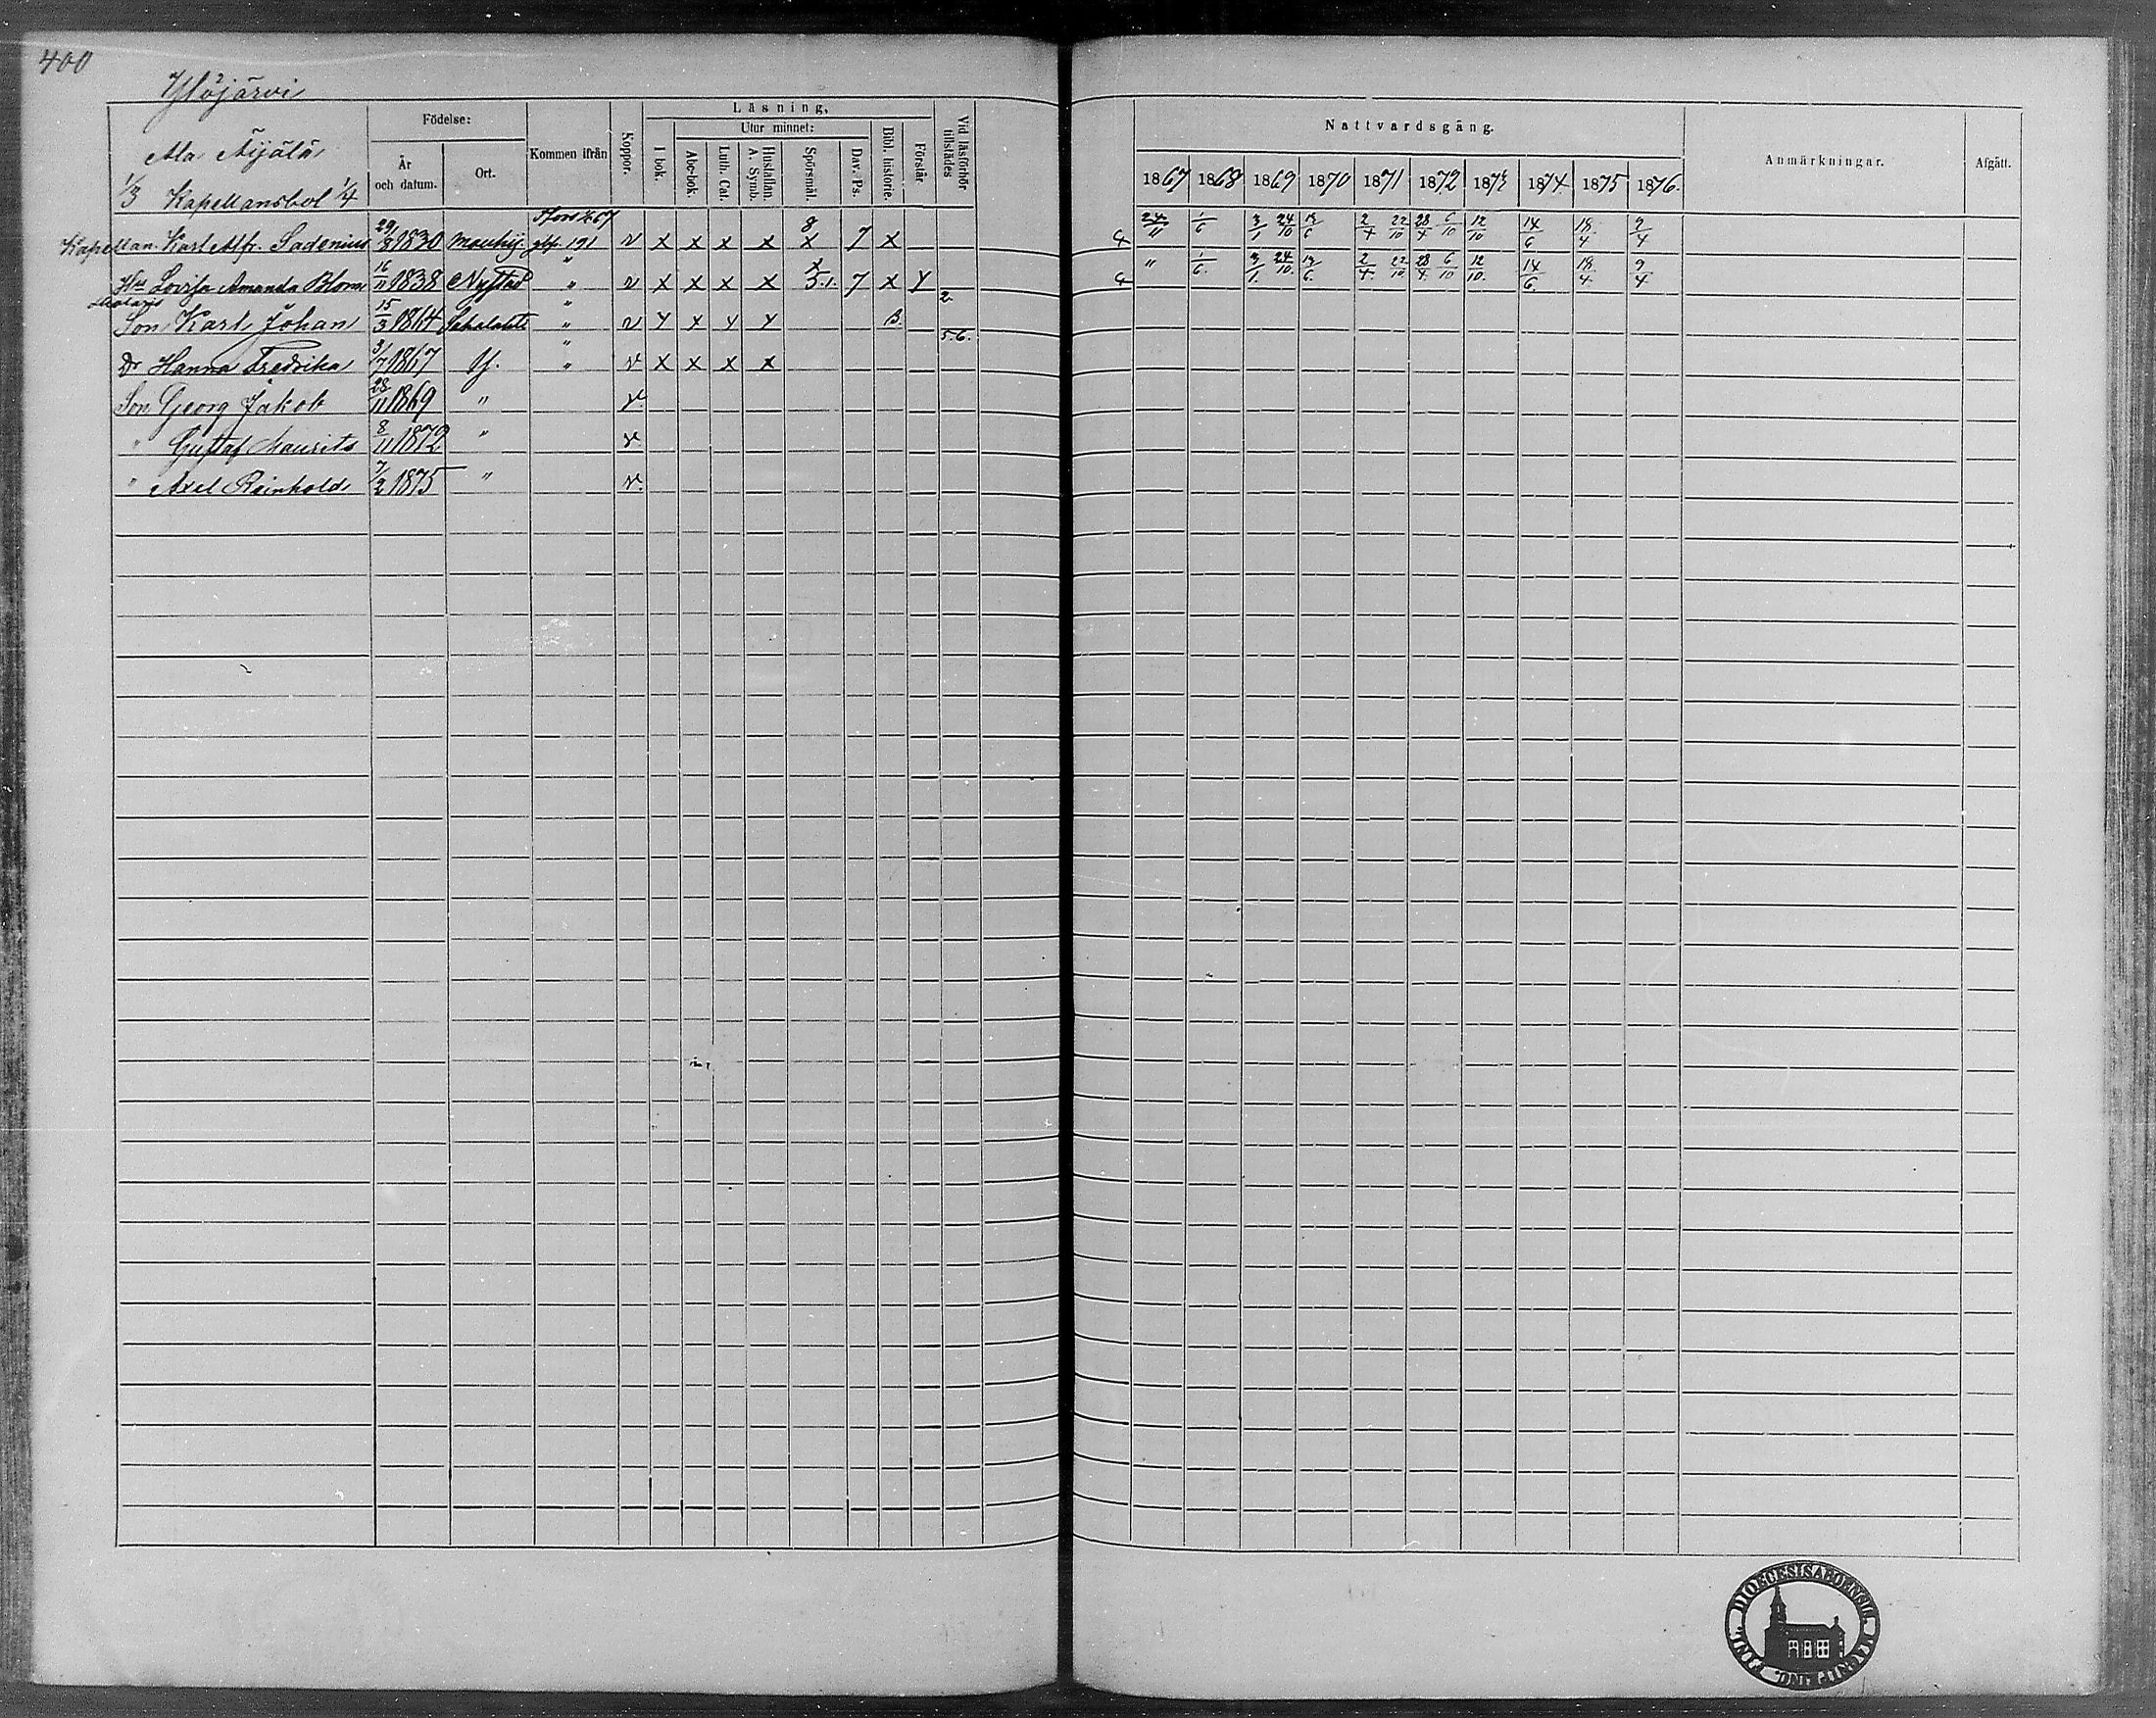 400
Ylöjärvi
Ala Äijälä
1/3 Kapellansbol 1/4
Födelse:
År och datum.
Ort.
Kommen ifrån
Koppor.
Läsning,
I bok.
Utur minnet:
Abc-bok.
Luth. Cat.
Hustaflan. A. Symb.
Spörsmål.
Dav. Ps.
Bibl. historie.
Förstår
Vid läsförhör tillstädes
Nattvardsgång.
1867 1868 1869 1870 1871 1872 1873 1874 1875 1876.
Anmärkningar.
Afgått.
Kapellan Karl Alfr. Sadenius 29/8 1830 191 v x x x x 8 x 7 x 4 24/11 1/6 3/1 24/10 2/4 22/10 28/4 6/10 12/10 14/6 18/4 9/4
Hu Lovisa Amanda Blom 16/11 1838 Nystad " v x x x x x 5.1. 7 x Y 4 " 1/6. 3/1. 24/10. 2/4. 22/10 28/4. 6/10 12/10. 14/6. 18/4 9/4
Son Karl Johan 15/3 1864 " v Y x Y Y B. 2.
Dr Hanna Fredrika 3/7 1867 Y. " v x x x x 5.6.
Son Georg Jakob 28/11 1869 " v.
" Gustaf Maurits 8/11 1872 " v.
" Axel Reinhold 7/2 1875 " v.